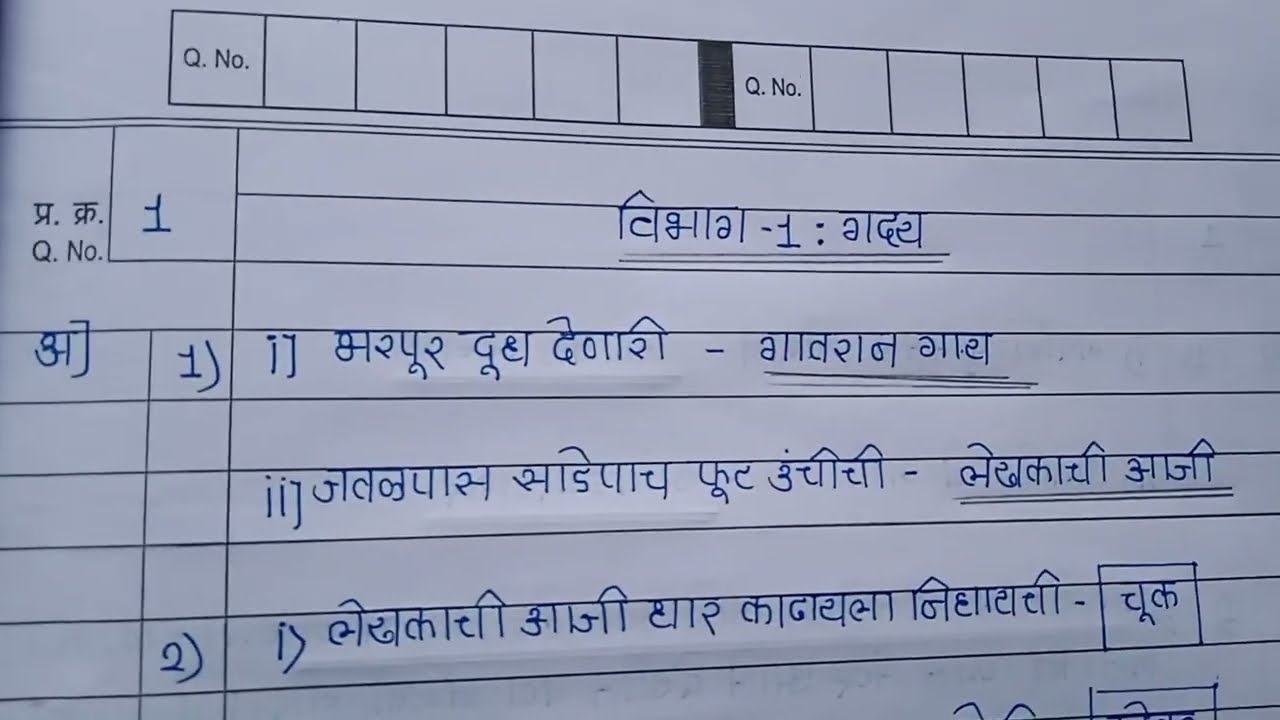 Q. No. Q. No.
प्र. क्र. 1
Q. No.
विभाग -1 : गद्य
अ] 1) i] भरपूर दूध देणारी - गावरान गाय
ii] जवळपास साडेपाच फूट उंचीची - लेखकाची आजी
2) i) लेखकाची आजी धार काढायला निघायची - चूक